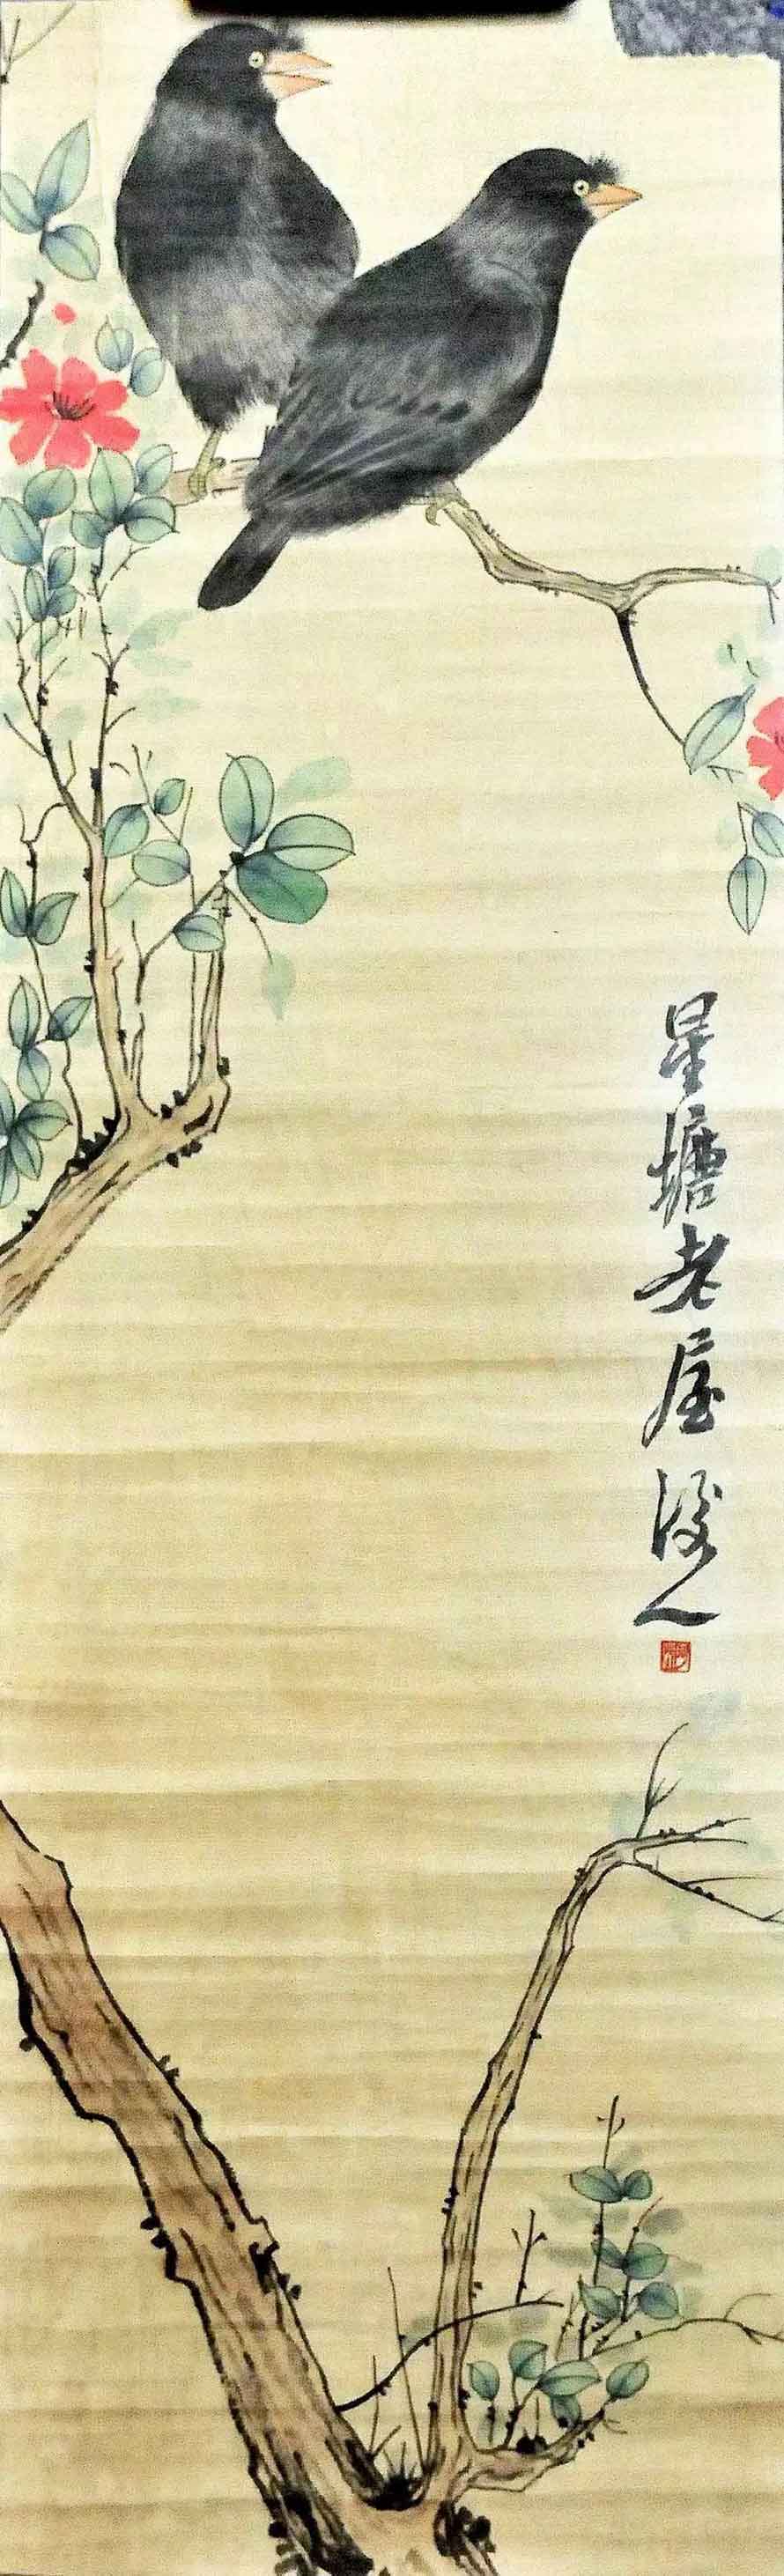 星塘老屋後人